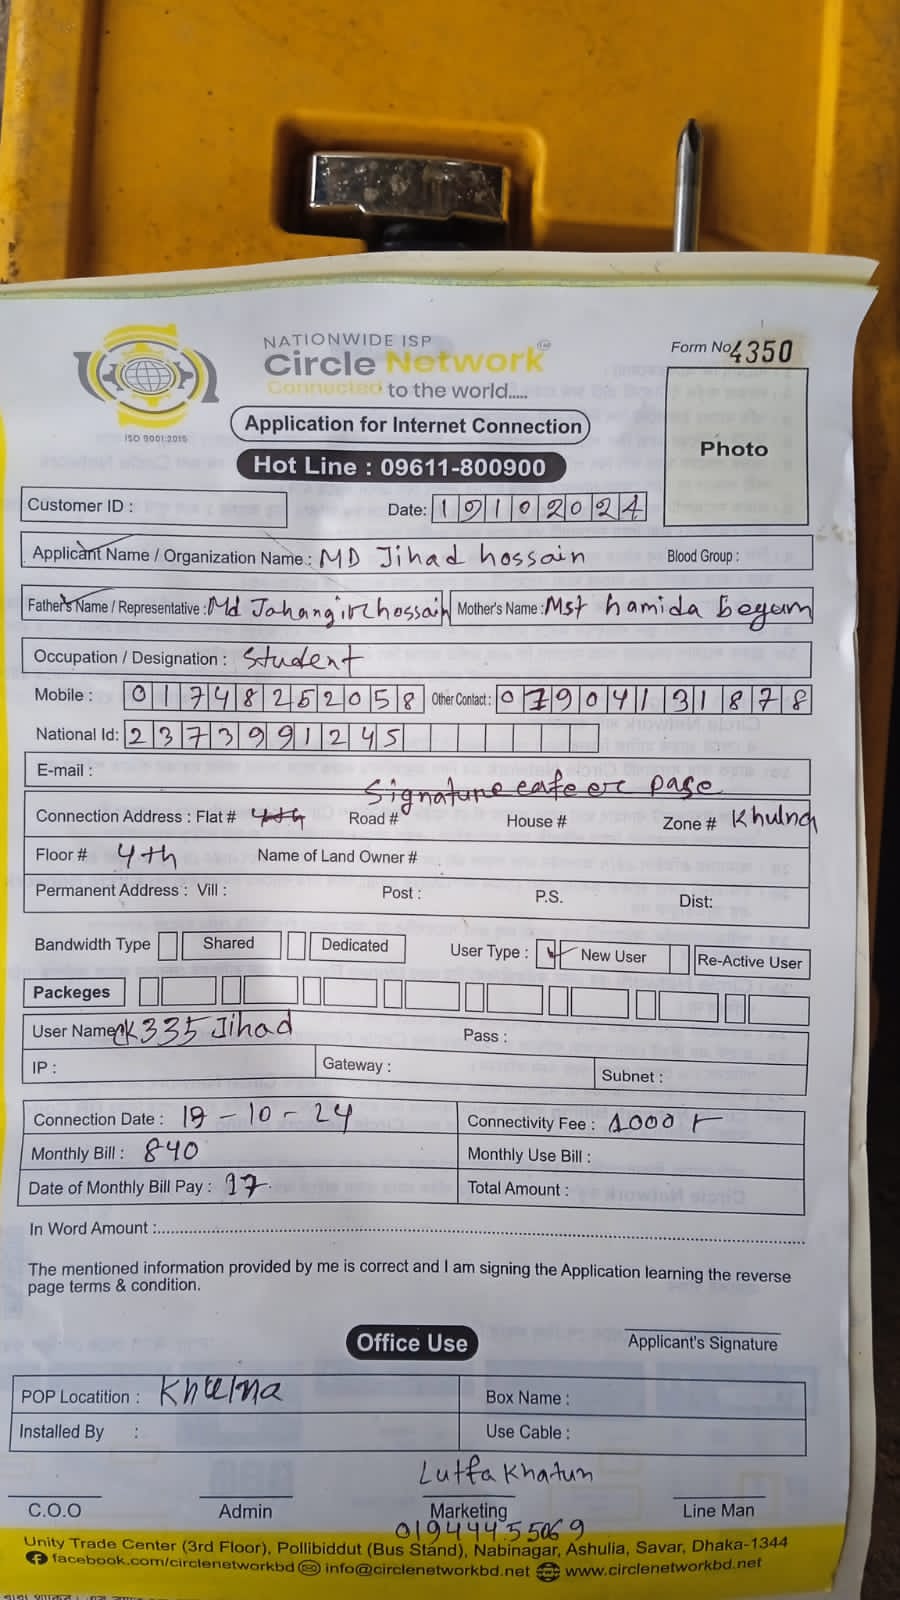 NATIONWIDE ISP
Circle Network
Connected to the world.....
ISO 9001:2015
Form No. 4350
Application for Internet Connection
Hot Line : 09611-800900
Photo
Customer ID :
Date: 19102024
Applicant Name / Organization Name : MD Jihad hossain Blood Group :
Father's Name / Representative : Md Jahangir hossain Mother's Name : Mst hamida begum
Occupation / Designation : Student
Mobile : 01748252058 Other Contact : 07904131878
National Id: 2373991245
E-mail :
Signature cafe er pase
Connection Address : Flat # 4th Road # House # Zone # Khulna
Floor # 4th Name of Land Owner #
Permanent Address : Vill : Post : P.S. Dist:
Bandwidth Type Shared Dedicated User Type : New User Re-Active User
Packeges
User Name K335 Jihad Pass :
IP : Gateway : Subnet :
Connection Date : 19-10-24 Connectivity Fee : 1000
Monthly Bill : 840 Monthly Use Bill :
Date of Monthly Bill Pay : 17 Total Amount :
In Word Amount :
The mentioned information provided by me is correct and I am signing the Application learning the reverse
page terms & condition.
Applicant's Signature
Office Use
POP Locatition : Khulna Box Name :
Installed By : Use Cable :
Lutfa Khatun
C.O.O Admin Marketing Line Man
01944455069
Unity Trade Center (3rd Floor), Pollibiddut (Bus Stand), Nabinagar, Ashulia, Savar, Dhaka-1344
facebook.com/circlenetworkbd info@circlenetworkbd.net www.circlenetworkbd.net